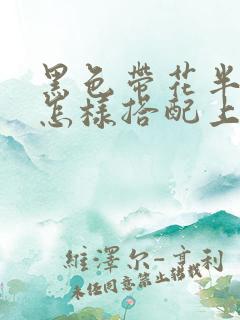 黑色带花半
怎样搭配上
維澤尔-亨利
未经同意禁止转载